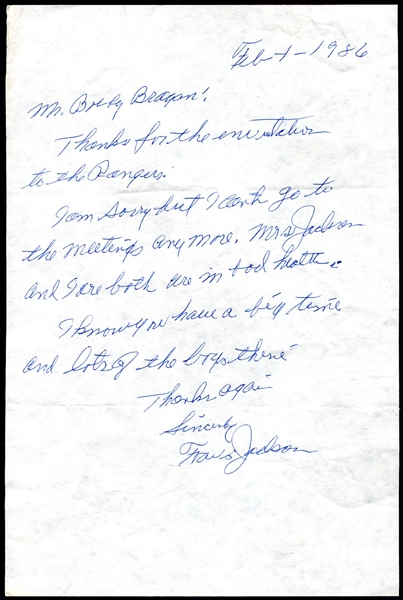 Feb-1-1986
Mr. Bobby Bragan!
Thanks for the envitation
to the Rangers.
I am Sorry but I can't go to
the meetings any more. Mrs Jackson
and I are both are in bad health.
I know you have a big time
and lots of the boys there
Thanks again
Sincerly
Travis Jackson